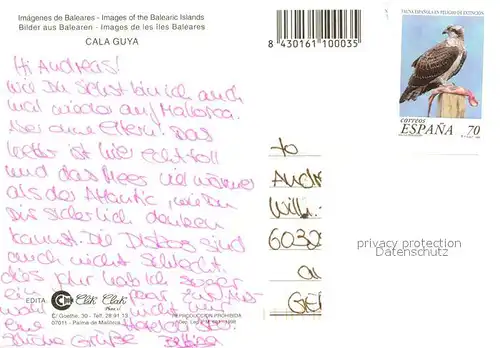 Imágenes de Baleares - Images of the Balearic Islands
Bilder aus Balearen - Images de les Îles Baleares
CALA GUYA
8 430161 100035
FAUNA ESPAÑOLA EN PELIGRO DE EXTINCION
correos
ESPAÑA 70
Hi Andreas!
Wie Du siehst bin ich auch
mal wieder auf Mallorca.
Aber ohne Eltern. Das
Wetter ist hier echt toll
und das Meer viel wärmer
als der Atlantic, wie Du
Dir sicherlich denken
kannst. Die Discos sind
auch nicht schlecht.
dies Jahr hab ich sogar
ein paar zur Aus-
wahl nicht nur
eine
Grüße Bettina
to
Andr
Will
6032
privacy protection
Datenschutz
EDITA Clik Clak
C/ Goethe, 30 - Telf. 28 91 13
07011 - Palma de Mallorca
REPRODUCCION PROHIBIDA